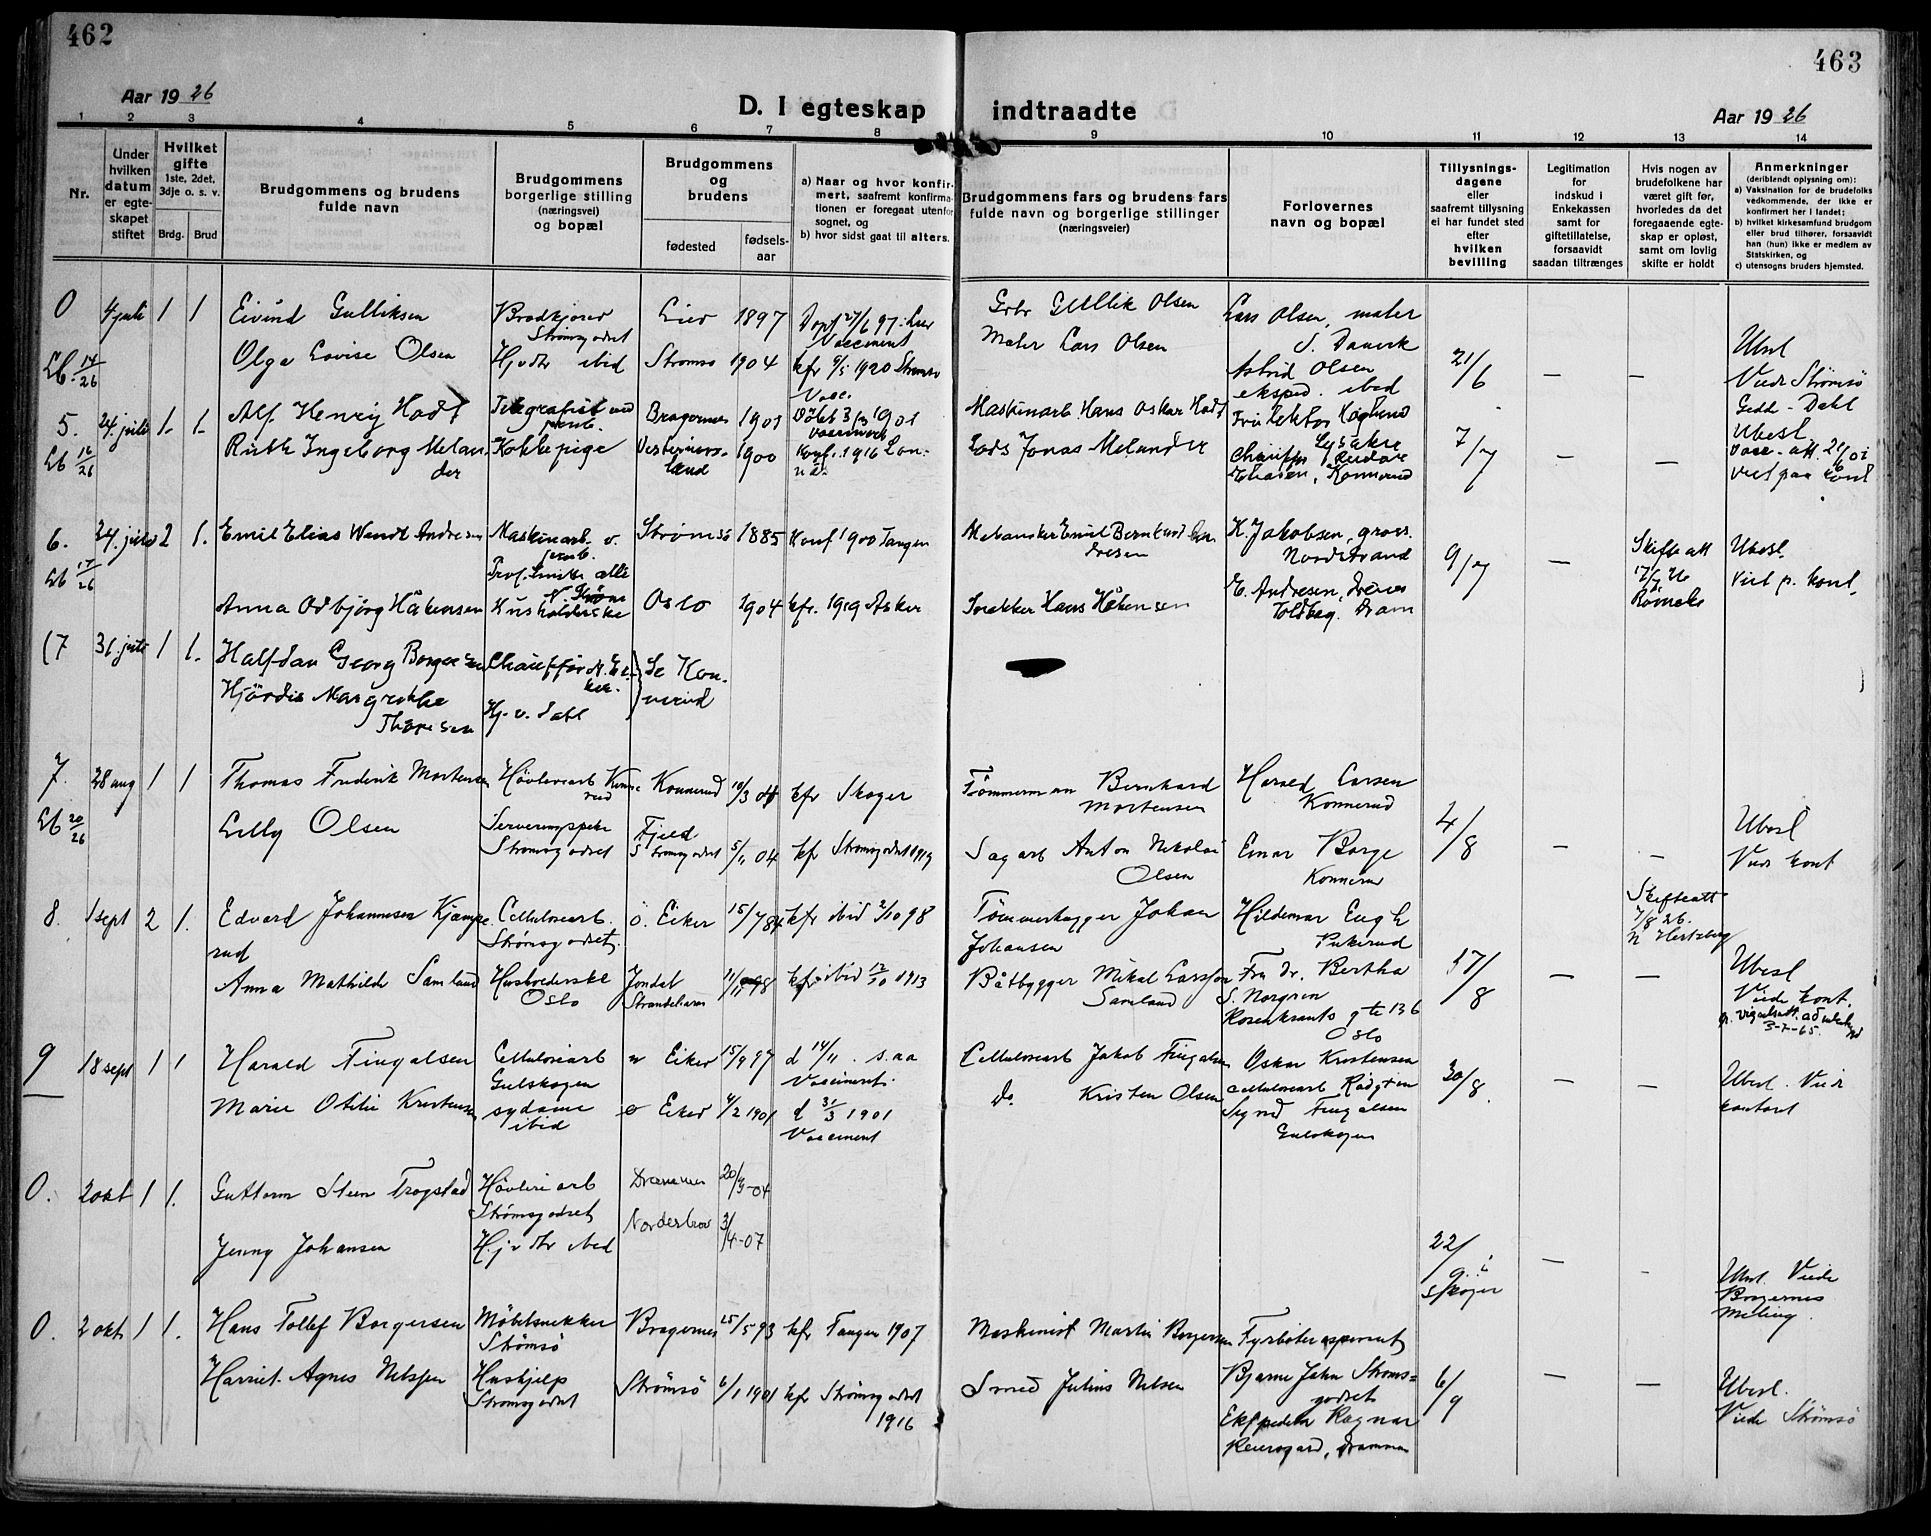 462
463
Aar 1926
D. I egteskap indtraadte
Aar 1926
1 2 3 4 5 6 7 8 9 10 11 12 13 14
Nr.
Under hvilken datum er egteskapet stiftet
Hvilket gifte 1ste, 2det, 3dje o. s. v.
Brdg. Brud
Brudgommens og brudens fulde navn
Brudgommens borgerlige stilling (næringsvei) og bopæl
Brudgommens og brudens
fødested
fødselsaar
a) Naar og hvor konfirmert, saafremt konfirmationen er foregaat utenfor sognet, og
b) hvor sidst gaat til alters.
Brudgommens fars og brudens fars fulde navn og borgerlige stillinger (næringsveier)
Forlovernes navn og bopæl
Tillysningsdagene eller saafremt tillysning ei har fundet sted efter hvilken bevilling
Legitimation for indskud i Enkekassen samt for giftetillatelse, forsaavidt saadan tiltrænges
Hvis nogen av brudefolkene har været gift før, hvorledes da det foregaaende egteskap er opløst, samt om lovlig skifte er holdt
Anmerkninger (deriblandt oplysning om):
a) Vaksination for de brudefolks vedkommende, der ikke er konfirmert her i landet;
b) hvilket kirkesamfund brudgom eller brud tilhører, forsaavidt han (hun) ikke er medlem av Statskirken, og
c) utensogns bruders hjemsted.
0 4 juli 1 1 Eivind Gulliksen
Strømsgodset
Lier 1897
Vaccinert
Gbr Gullik Olsen
Lars Olsen, maler
Lb. 14/26
Olga Lovise Olsen
Hj.v.dtr ibid
Strømsø 1904 kfr 9/5 1920 Strømsø
Maler Lars Olsen
Astrid Olsen
eksped. ibid
21/6 — —
Ubesl
Viede Strømsø
5. 24. juli 1. 1. Alf Henry Hodt
Telegrafist ved
Bragernes 1901
Vaccinert
Maskinarb Hans Oskar Hodt
Lb 16/26
Ruth Ingeborg Melander
Kokkepige
1900 Konf. 1916
Lods Jonas Melander
7/7 — —
Ubesl.
6. 24. juli 2 1. Emil Elias Wendt Andresen
Maskinarb. v.
Strømsø 1885 Konf 1900 Tangen
K. Jakobsen, gross.
Nordstrand
Lb 17/26
9/7 —
Skifteatt
Ubesl.
Viet p. kont.
Anna Odbjørg Håkensen
Husholderske
Oslo 1904 kfr. 1919 Asker
Snekker Hans Håkensen
E. Andresen,
Toldbog. Dram
(7 31. juli 1 1. Halfdan Georg Borgersen
Chauffør N. Eiker.
Se Konnerud
Hjørdis Margrethe Thoresen
7. 28 aug 1 1 Thomas Frederik Mortensen
Høvleriarb Konnerud
Konnerud 10/3 04 kfr Skoger
Tømmermann Bernhard Mortensen
Harald Larsen
Konnerud
Lb 20/26
Lilly Olsen
Strømsgodset
Fjeld
Strømsgodset 5/11 04 kfr Strømsgodset 1919
Sagarb Anton Nikolai Olsen
Einar Borge
Konnerud
4/8 — —
Ubesl
Viede kont
8. 1 sept 2 1. Edvard Johannesen Kjemperud
Cellulosearb.
Strømsgodset.
ö. Eiker 15/7 84 kfr ibid 2/10 98
Tømmerhugger Johan Johansen
Hildemar Engh
Skifteatt
7/8 26.
Anna Mathilde Samland
Husholderske
Oslo
Jondal
Strandebarm
11/11 98 kfr ibid 12/10 1913
Båtbygger Mikal Larsson Samland
Fru Dr. Bertha
S. Norgren
Rosenkrants gte 136
Oslo
17/8 — —
Ubesl
Viede kont.
3-7-65.
9 18 sept 1 1 Harald Fingalsen
Cellulosearb
Gulskogen
n Eiker 15/9 97 d 14/11 s. aa
Vaccinert.
Cellulosearb Jakob Fingalsen
Oskar Kristensen
Marie Otilie Kristensen
sydame
ibid
ø Eiker 4/2 1901 d 31/3 1901
Vaccinert
do Kristen Olsen
Signe Fingalsen
Gulskogen
30/8. — —
Ubesl. Viede
kontoret
0. 2 okt 1 1. Guttorm Steen Trogstad
Høvleriarb
Strømsgodset
Drammen 20/9-04
Jenny Johansen
H.j.v dtr ibid
Norderhov 3/4-07
22/9 i Skoger — -
Ubesl. Viede
Bragernes
0. 2 okt 1 1. Hans Tollef Borgersen
Møbelsnekker
Strømsø
Bragernes 25/5 93 kfr Tangen 1907
Maskinist Martin Borgersen
Harriet Agnes Nilsen
Hushjelp
Strømsgodset
Strømsø 6/1 1901 kfr Strømsgodset 1916
Smed Julius Nilsen
Bjarne Jahn Strømsgodset
Ekspeditør Ragnar
Reiersgard, Drammen
6/9 — —
Ubesl.
Viede Strømsø